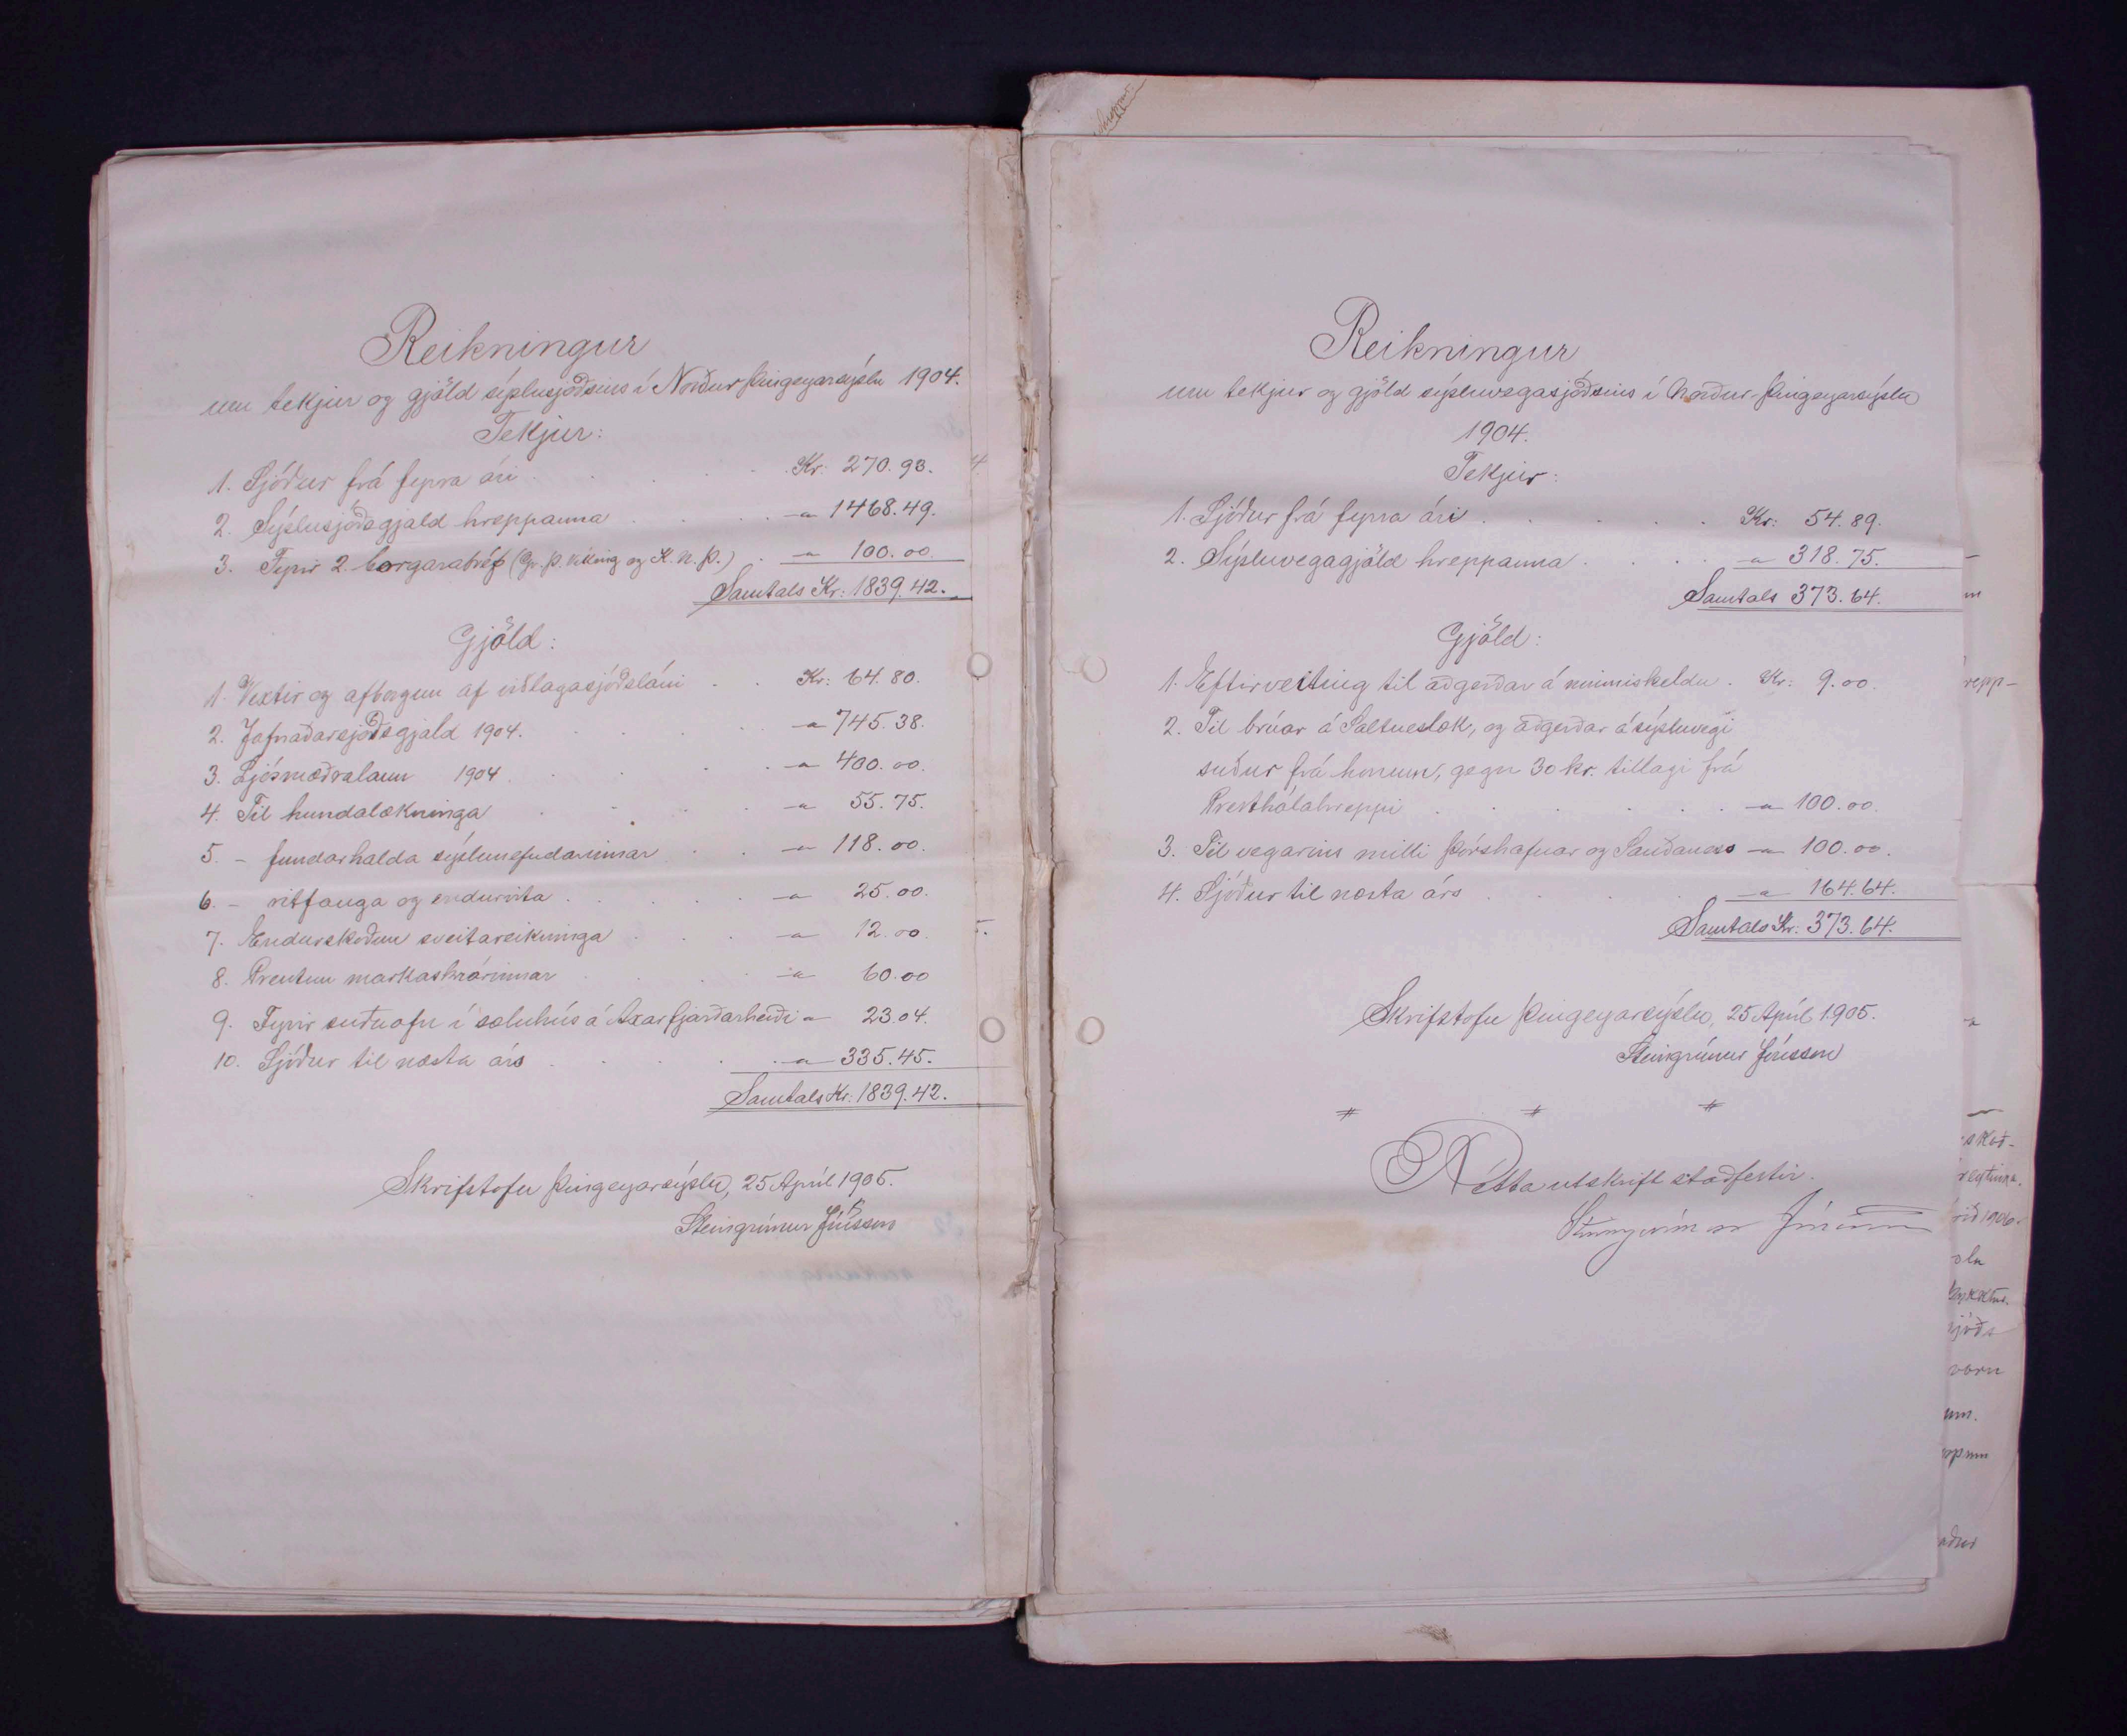 Reikningur
um tekjur og gjöld sýslusjóðsins í Norður Þingeyarsýslu 1904.
Tekjur:
1. Sjóður frá fyrra ári . . . . Kr: 270.93.
2. Sýslusjóðsgjald hreppanna . . . . - " - 1468.49.
3. Fyrir 2 borgarabréf (Gr. Þ. Víking og K. N. Þ.) . - " - 100.00
Samtals Kr: 1839.42.
Gjöld:
1. Vextir og afborgun af viðlagasjóðsláni . . Kr: 64.80.
2. Jafnaðarsjóðsgjald 1904. . . . . - " - 745.38.
3. Ljósmæðralaun 1904 . . . . - " - 400.00.
4. Til hundalækninga . . . . - " - 55.75.
5. - fundarhalda sýslunefndarinnar . . - " - 118.00.
6. - ritfanga og endurrita . . . . . - " - 25.00.
7. Endurskoðun sveitareikninga . . . - " - 12.00.
8. Prentun markaskrárinnar . . . - " - 60.00
9. Fyrir suðuofn í sæluhús á Axarfjarðarheiði - " - 23.04.
10. Sjóður til næsta árs . . . . - " - 335.45.
Samtals Kr: 1839.42.
Skrifstofu Þingeyarsýslu, 25 Apríl 1905.
Steingrímur Jónsson
Reikningur
um tekjur og gjöld sýsluvegasjóðsins í Norður-Þingeyarsýslu
1904.
Tekjur:
1. Sjóður frá fyrra ári . . . . . Kr: 54.89.
2. Sýsluvegagjöld hreppanna . . . . - " - 318.75.
Samtals 373.64.
Gjöld:
1. Eftirveiting til aðgerðar á mimiskeldu . Kr: 9.00.
2. Til brúar á Saltveslæk, og aðgerðar á sýsluvegi
suður frá honum, gegn 30 kr. tillagi frá
Presthólahreppi . . . . . . - " - 100.00.
3. Til vegarins milli Þórshafnar og Sauðaness - " - 100.00.
4. Sjóður til næsta árs . . . . - " - 164.64.
Samtals Kr: 373.64.
Skrifstofu Þingeyarsýslu, 25 Apríl 1905.
Steingrímur Jónsson
# # #
Rétta útskrift staðfestir.
Steingrímur Jónsson